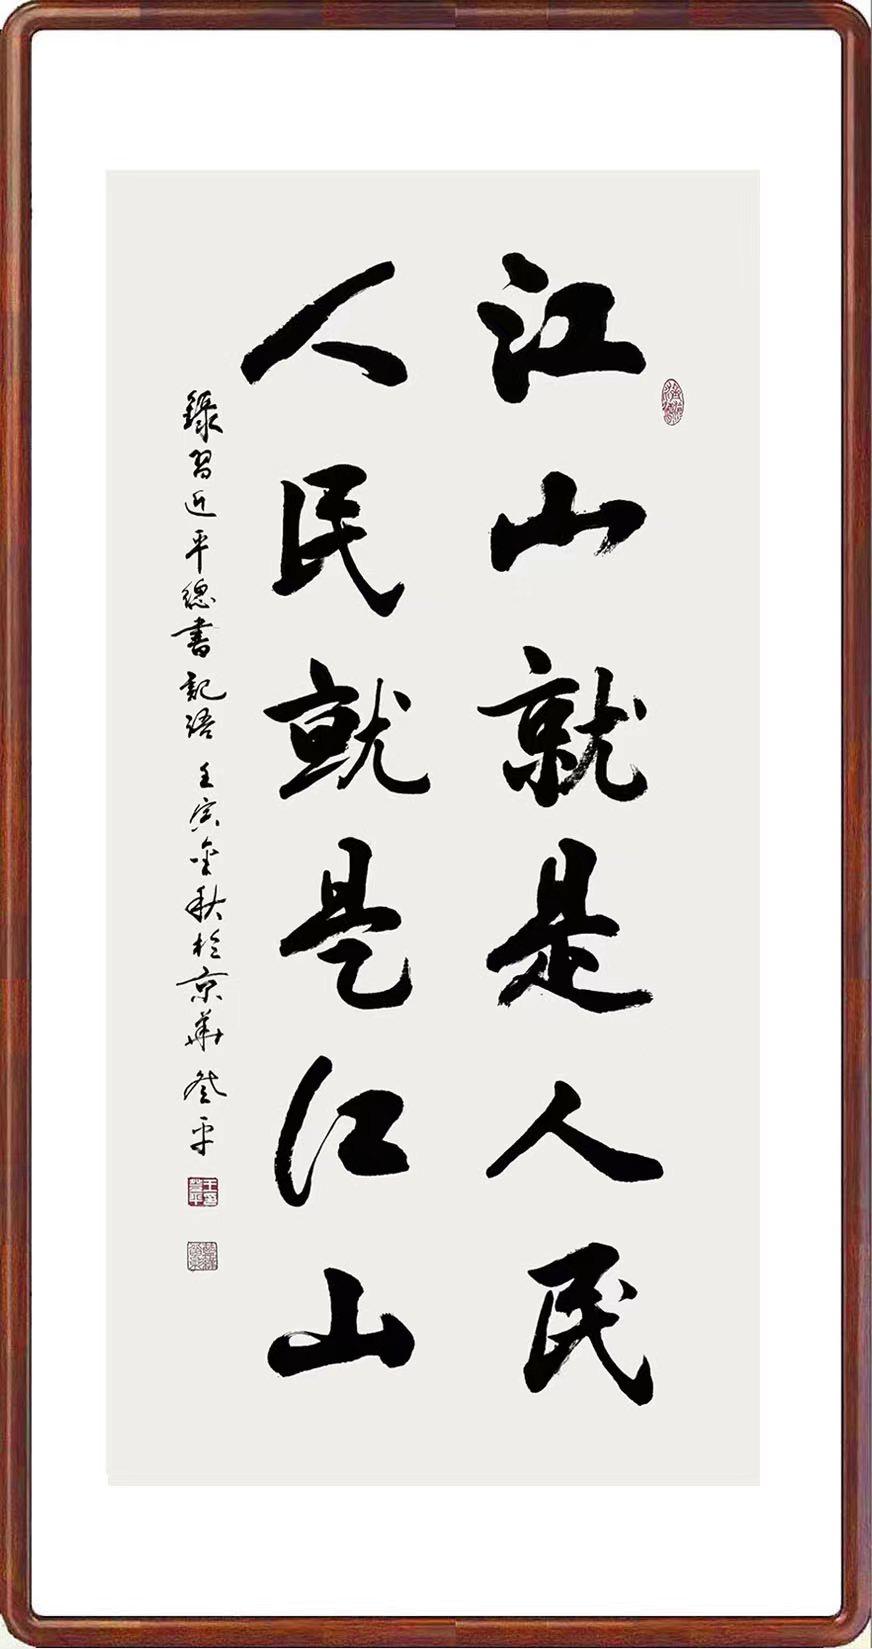 江山就是人民
人民就是江山
錄習近平總書記語 壬寅金秋於京華 登平